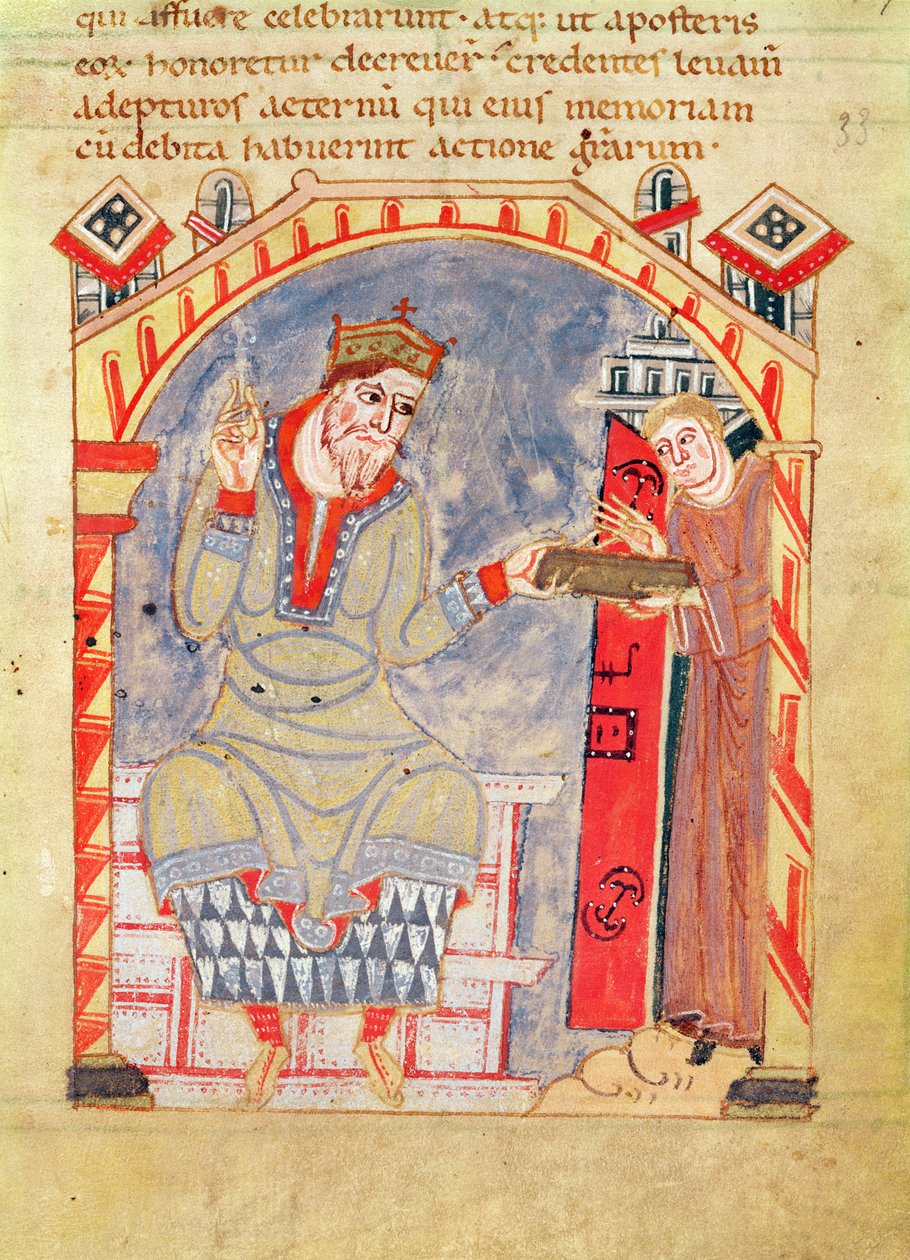 qui affuere celebrarunt· atq: ut aposteris
eoꝝ honoretur decreuer̄· credentes leuam̄
adepturos aeternū qui eius memoriam
cū debita habuerint actione gr̄arum·
33